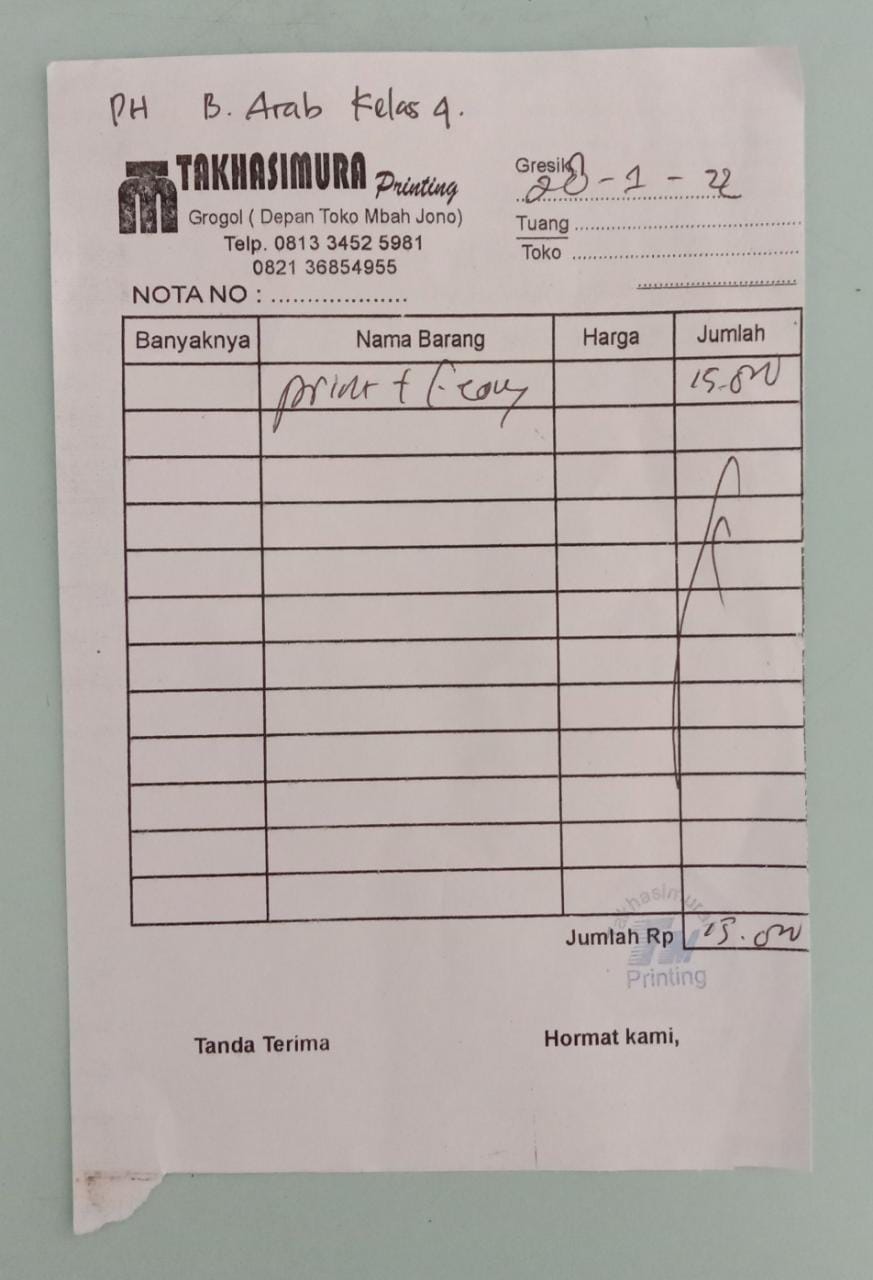 PH B. Arab Kelas 4.
TAKHASIMURA Printing
Grogol ( Depan Toko Mbah Jono)
Telp. 0813 3452 5981
0821 36854955
NOTA NO : ...................
Gresik 28 - 1 - 22
Tuang
Toko
Banyaknya Nama Barang Harga Jumlah
print + F. copy 15.000
Jumlah Rp 15.000
Takhasimura
TM
Printing
Tanda Terima Hormat kami,